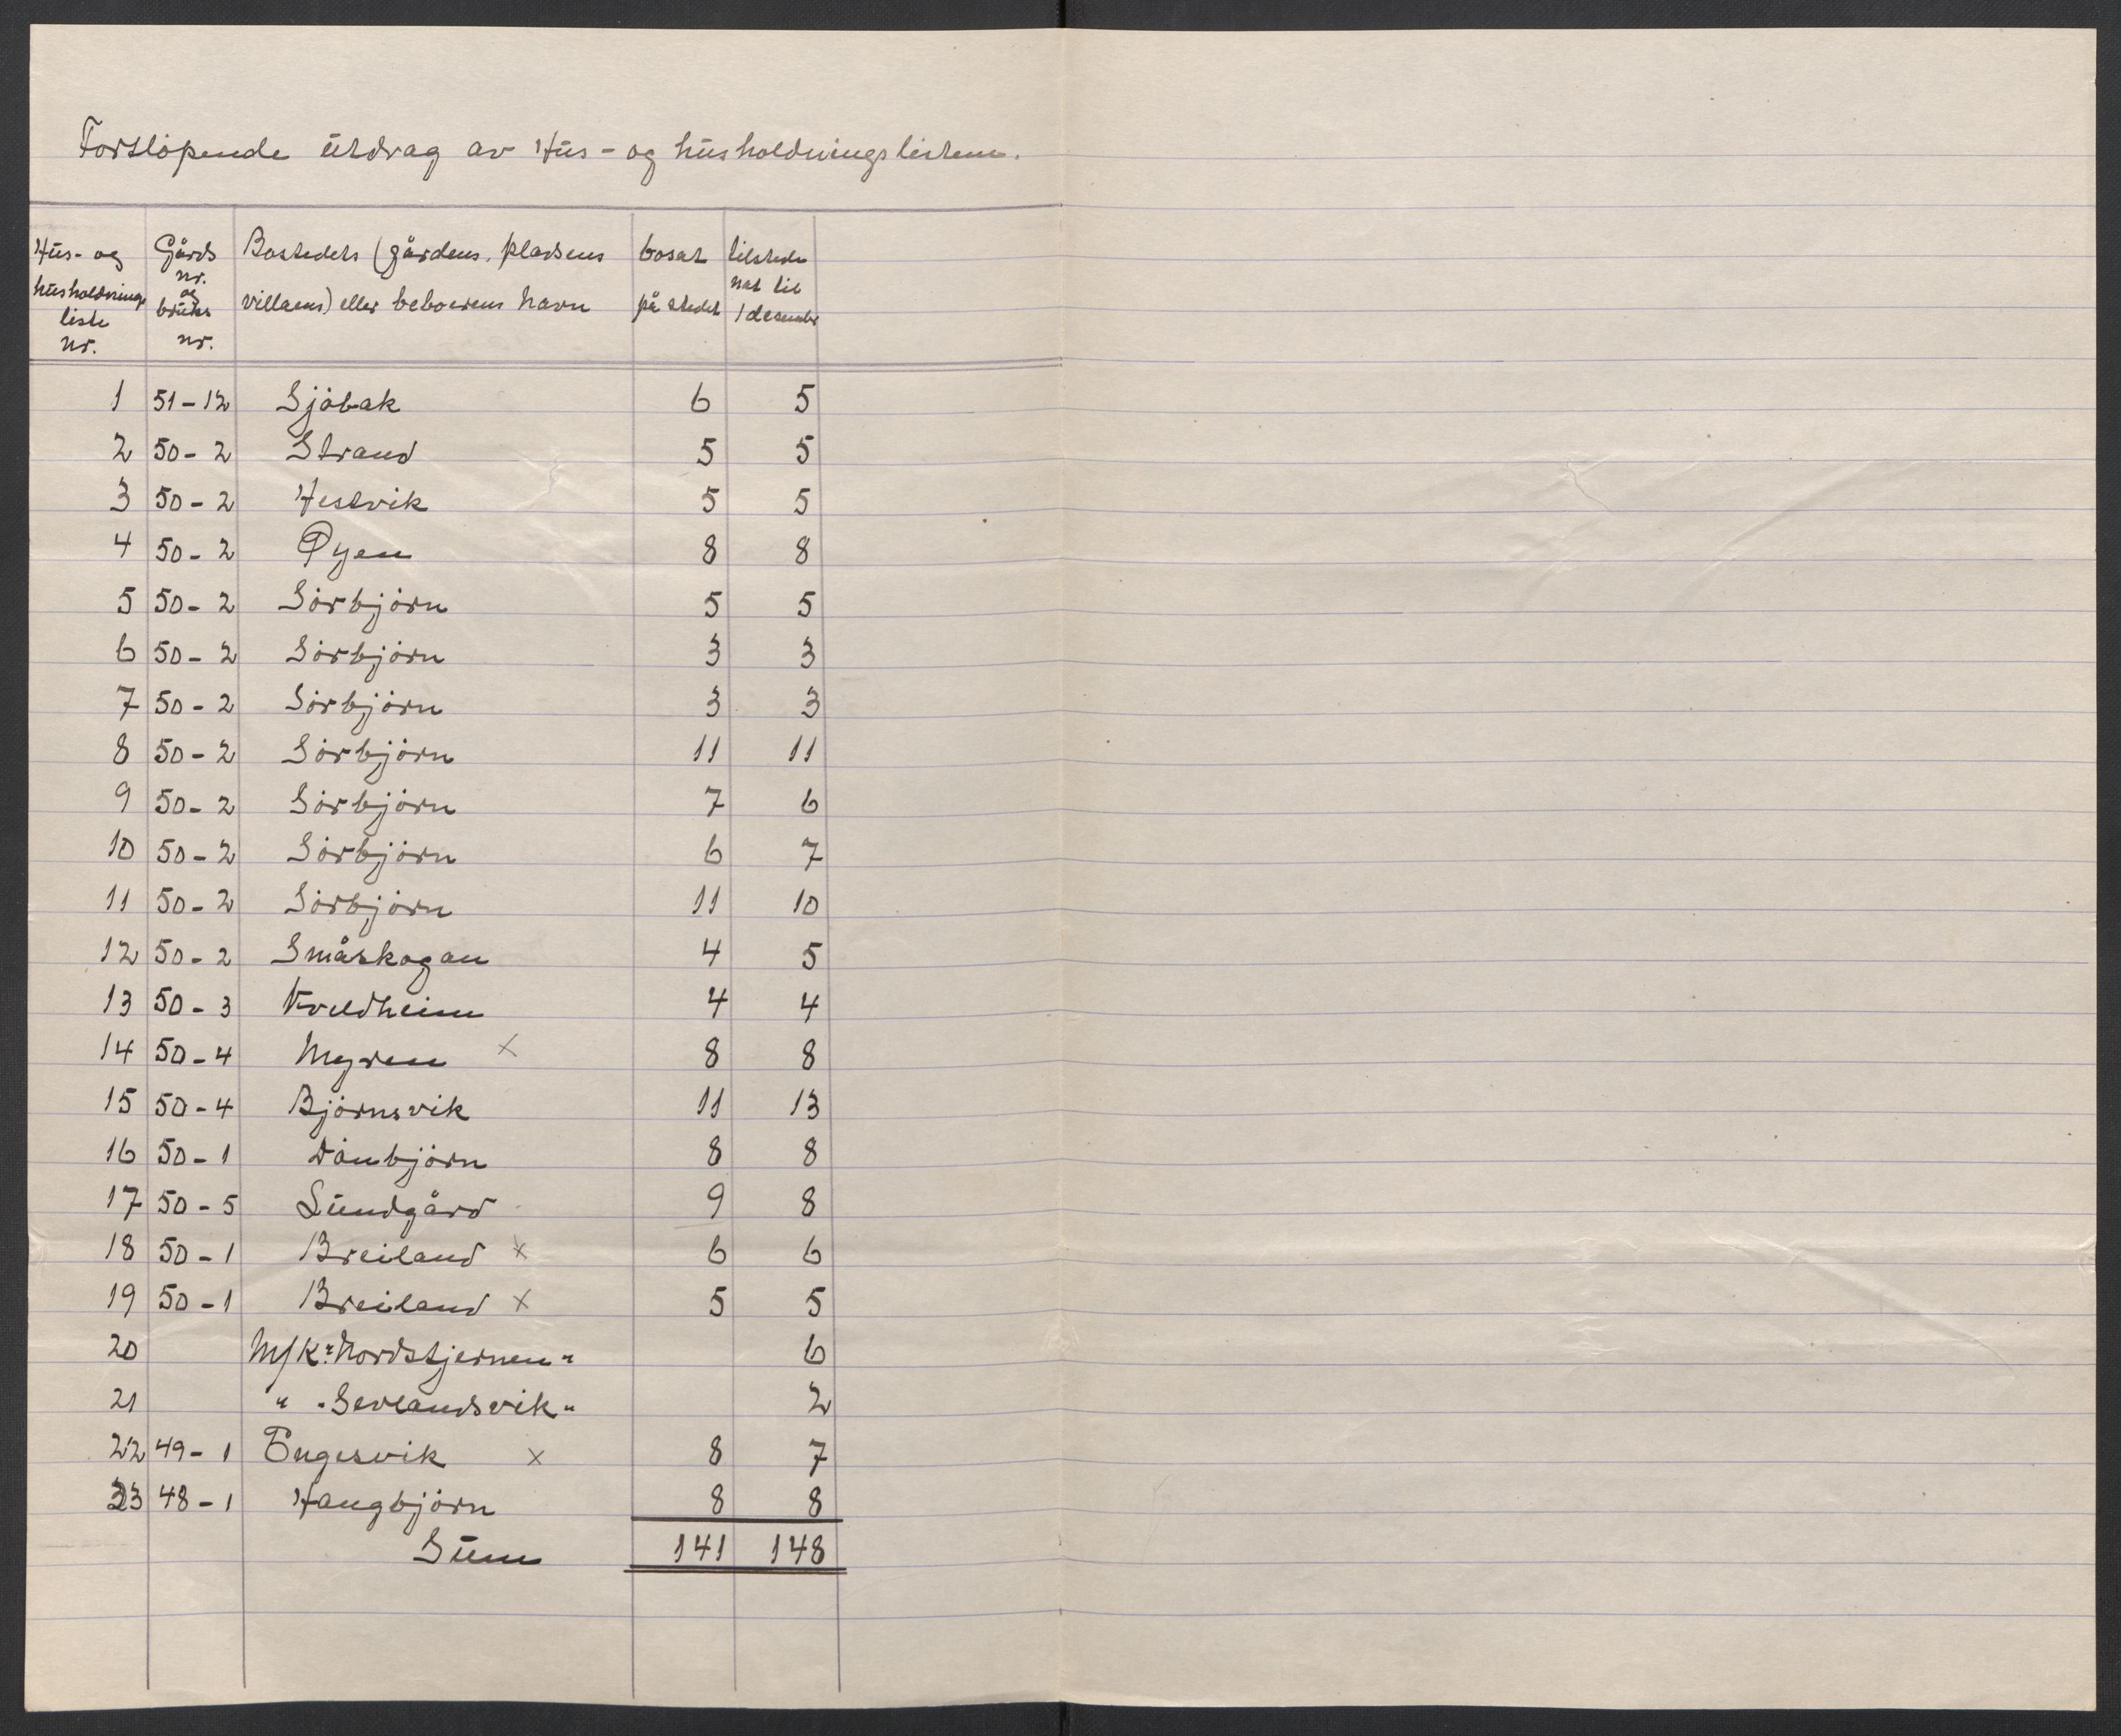 Fortløpende utdrag av Hus- og husholdningslisten.
Hus- og husholdnings liste nr. | Gårds nr. og bruks nr. | Bostedets (gårdens, pladsens villaens) eller beboerens navn | bosat på stedet | tilstede nat til 1 desember
1 51-12 Sjöbak 6 5
2 50-2 Strand 5 5
3 50-2 Hestvik 5 5
4 50-2 Øyen 8 8
5 50-2 Sörbjörn 5 5
6 50-2 Sörbjörn 3 3
7 50-2 Sörbjörn 3 3
8 50-2 Sörbjörn 11 11
9 50-2 Sörbjörn 7 6
10 50-2 Sörbjörn 6 7
11 50-2 Sörbjörn 11 10
12 50-2 Småskogan 4 5
13 50-3 Kveldheim 4 4
14 50-4 Myren × 8 8
15 50-4 Björnsvik 11 13
16 50-1 Dönbjörn 8 8
17 50-5 Lundgård 9 8
18 50-1 Breiland × 6 6
19 50-1 Breiland × 5 5
20 M/K "Nordstjernen" 6
21 " "Sevlandsvik" 2
22 49-1 Engesvik × 8 7
23 48-1 Haugbjörn 8 8
Sum 141 148